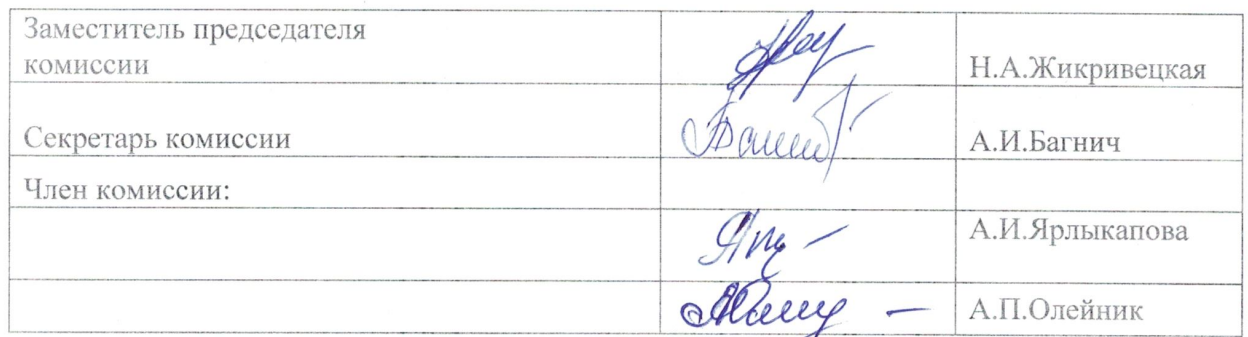 Заместитель председателя
комиссии
Н.А.Жикривецкая
Секретарь комиссии
А.И.Багнич
Член комиссии:
А.И.Ярлыкапова
А.П.Олейник